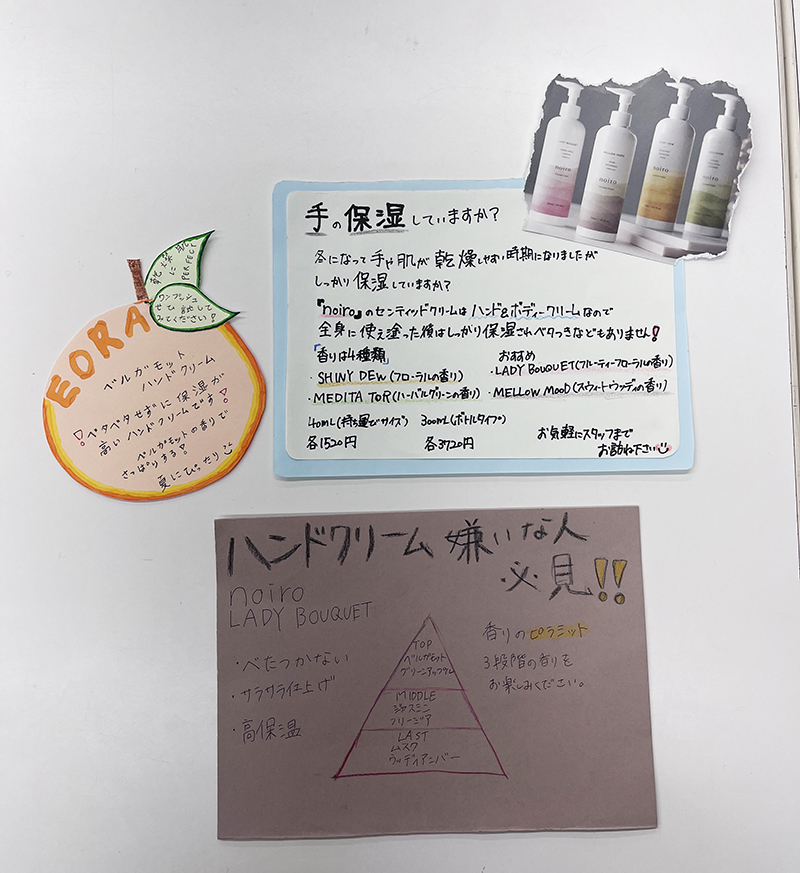 手の保湿していますか?
冬になって手や肌が乾燥しやすい時期になりましたが
しっかり保湿していますか?
『noiro』のセンティッドクリームはハンド&ボディークリームなので
全身に使え塗った後はしっかり保湿されベタつきなどもありません!
「香りは4種類」
おすすめ
・SHINY DEW(フローラルの香り)
・LADY BOUQUET(フルーティーフローラルの香り)
・MEDITA TOR(ハーバルグリーンの香り)
・MELLOW MOOD(スウィートウッディの香り)
40mL(持ち運びサイズ)
300mL(ボトルタイプ)
各1520円
各3720円
お気軽にスタッフまで
お訪ね下さい
noiro
noiro
noiro
noiro
乾と楽
に肌
PERFECT
ワンプッシュ
ぜひ試して
みてください!
EORA
ベルガモット
ハンドクリーム
ベタベタせずに保湿が
高いハンドクリームです!
ベルガモットの香りで
さっぱりする!
夏にぴったり
ハンドクリーム嫌いな人
必見!!
noiro
LADY BOUQUET
・べたつかない
・サラサラ仕上げ
・高保温
TOP
ベルガモット
グリーンアップル
MIDDLE
ジャスミン
フリージア
LAST
ムスク
ウッディアンバー
香りのピラミット
3段階の香りを
お楽しみください。